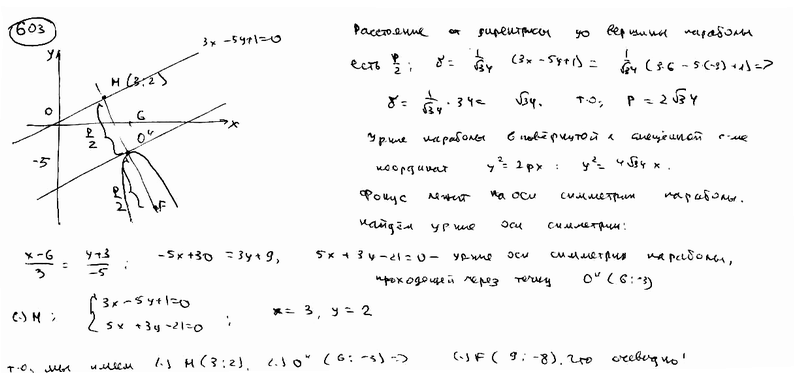 603
3x - 5y + 1 = 0
y
M (3; 2)
0
6
x
O''
p/2
-5
p/2
F
Расстояние от директрисы до вершины параболы
есть p/2; γ = 1/√34 (3x - 5y + 1) = 1/√34 (3·6 - 5(-3) + 1) =>
γ = 1/√34 · 34 = √34. т.о; p = 2√34
Ур-ние параболы в повёрнутой и смещённой с-ме
координат y² = 2px : y² = 4√34 x.
Фокус лежит на оси симметрии параболы.
Найдём ур-ние оси симметрии:
(x-6)/3 = (y+3)/-5 ; -5x + 30 = 3y + 9, 5x + 3y - 21 = 0 - ур-ние оси симметрии параболы,
проходящей через точку O'' (6; -3)
(·) M : { 3x - 5y + 1 = 0
5x + 3y - 21 = 0 ; x = 3, y = 2
т.о. мы имеем (·) M (3; 2), (·) O'' (6; -3) => (·) F (9; -8), что очевидно!